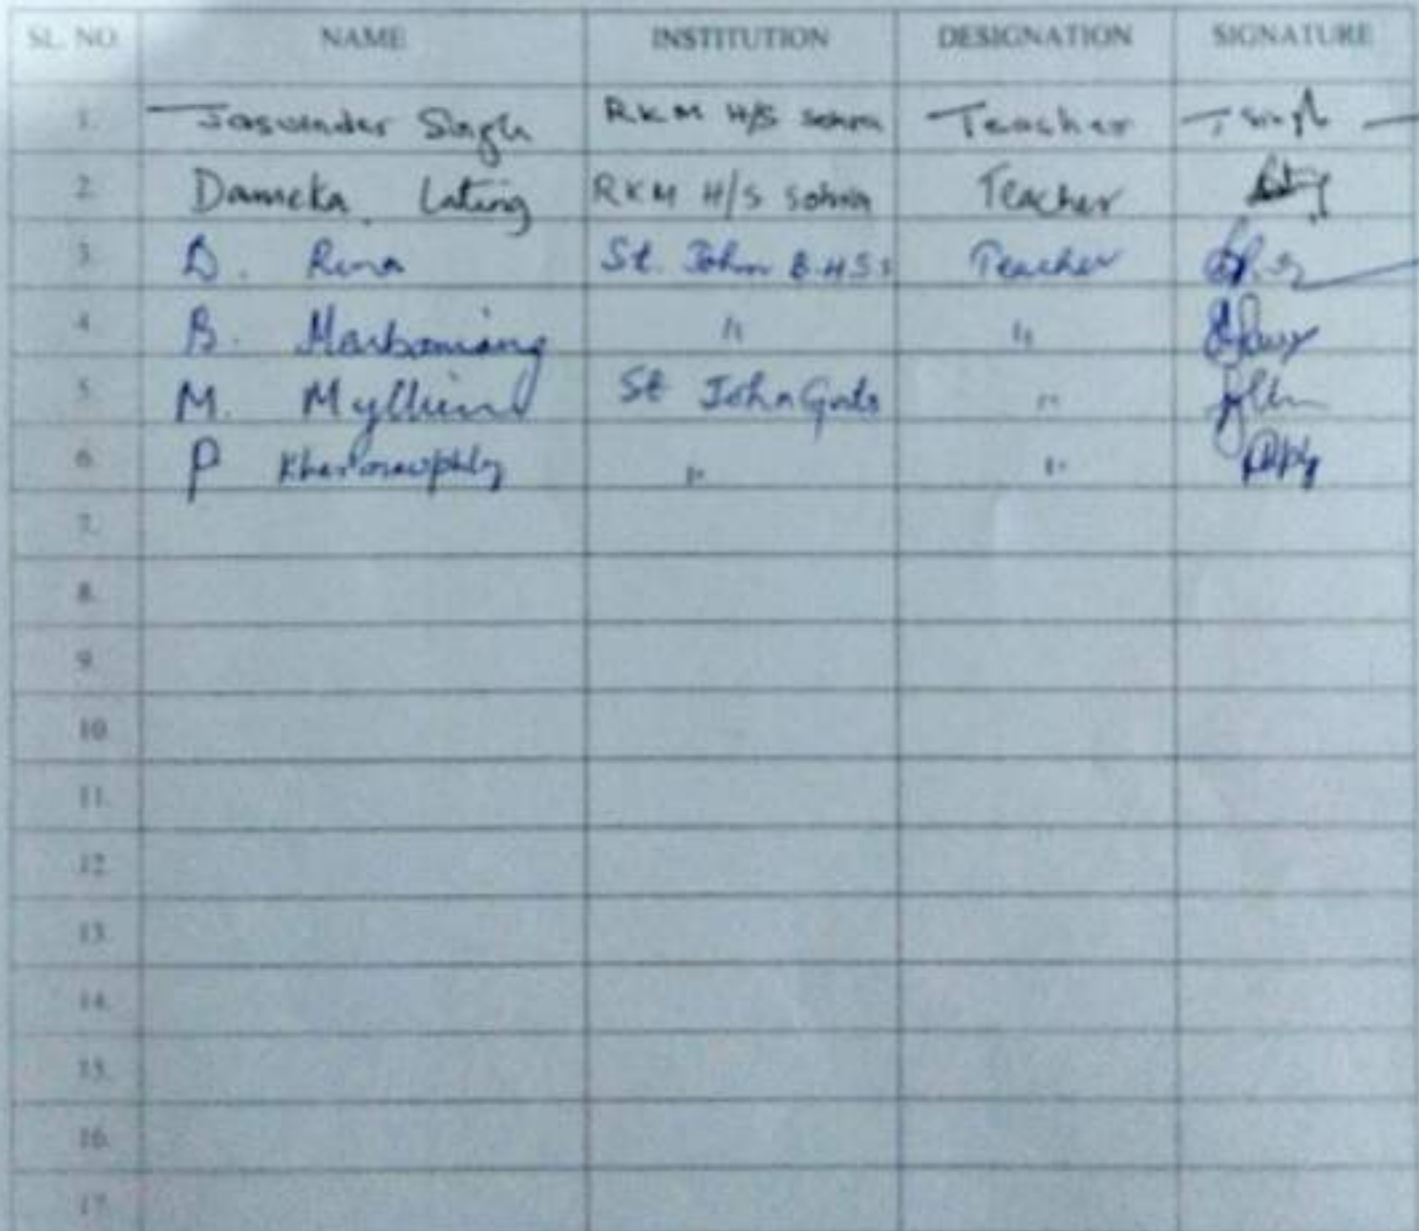 SL. NO. NAME INSTITUTION DESIGNATION SIGNATURE
1. Jaswinder Singh RKM H/S Sohra Teacher J Singh
2. Dameka Lating RKM H/S Sohra Teacher
3. D. Rina St. John B.H.S.S Teacher
4. B. Marbaniang " "
5. M. Mylliem St John Girls "
6. P " "
7.
8.
9.
10.
11.
12.
13.
14.
15.
16.
17.